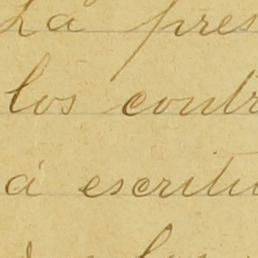 La pres
los contr
á escritu